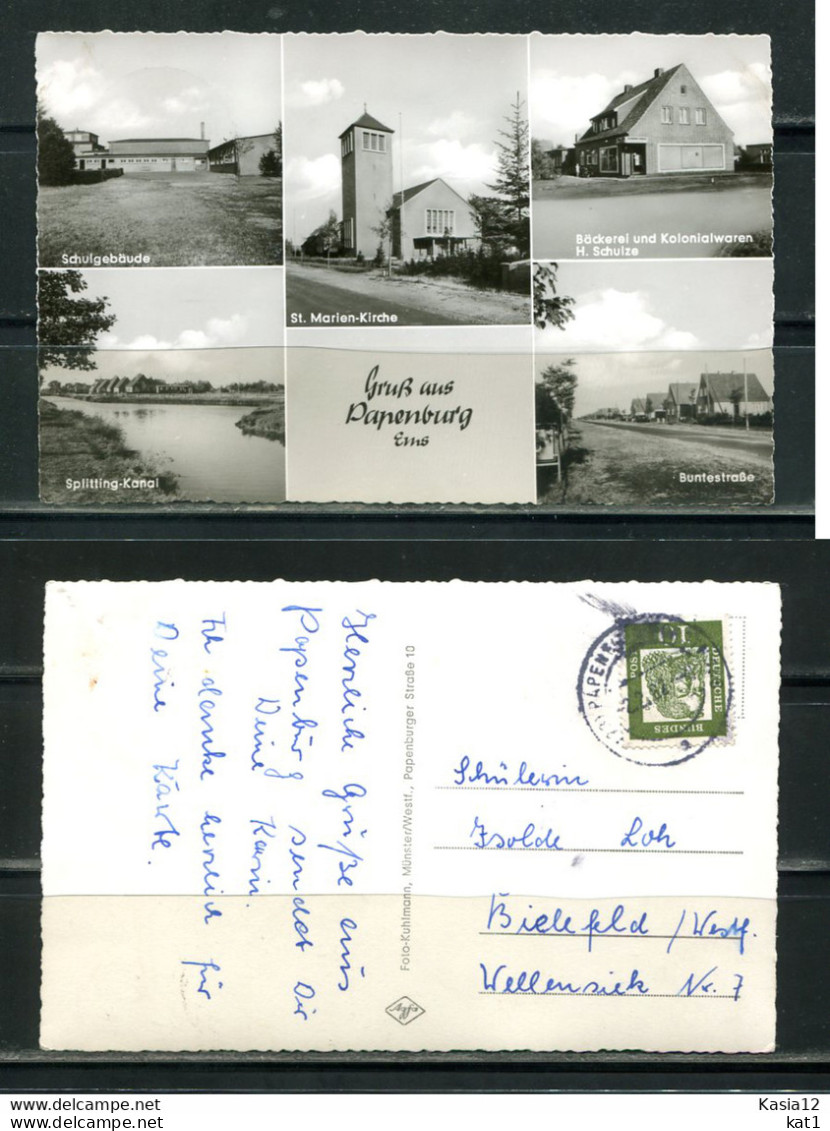 Schulgebäude
St. Marien-Kirche
Bäckerei und Kolonialwaren
H. Schulze
Splitting-Kanal
Gruß aus
Papenburg
Ems
Buntestraße
Herzliche Grüße aus
Papenburg sendet Dir
Deine Karin.
Ich danke herzlich für
Deine Karte.
Foto-Kuhlmann, Münster/Westf., Papenburger Straße 10
Agfa
PAPENB
10
DEUTSCHE
BUNDES
POST
Schülerin
Isolde Loh
Bielefeld / Westf.
Wellensiek Nr. 7
Kasia12
kat1